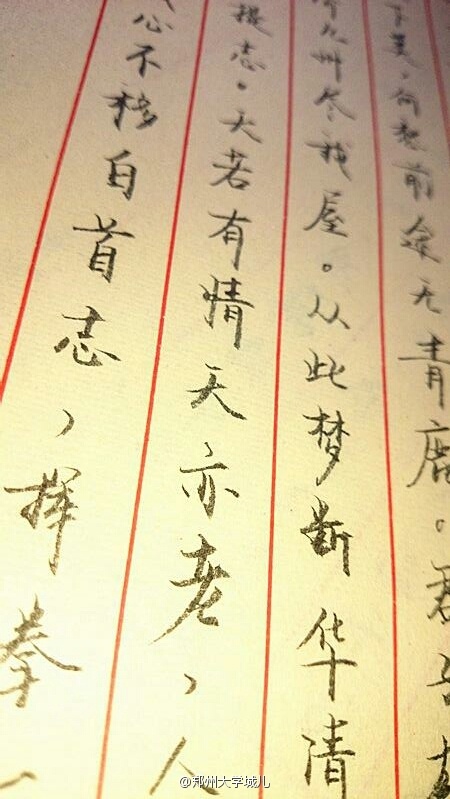 美，何愁前途无青鹿。君
九州尽我屋。从此梦断华清
志。天若有情天亦老，人
心不移自首志，挥拳一
@郑州大学城儿